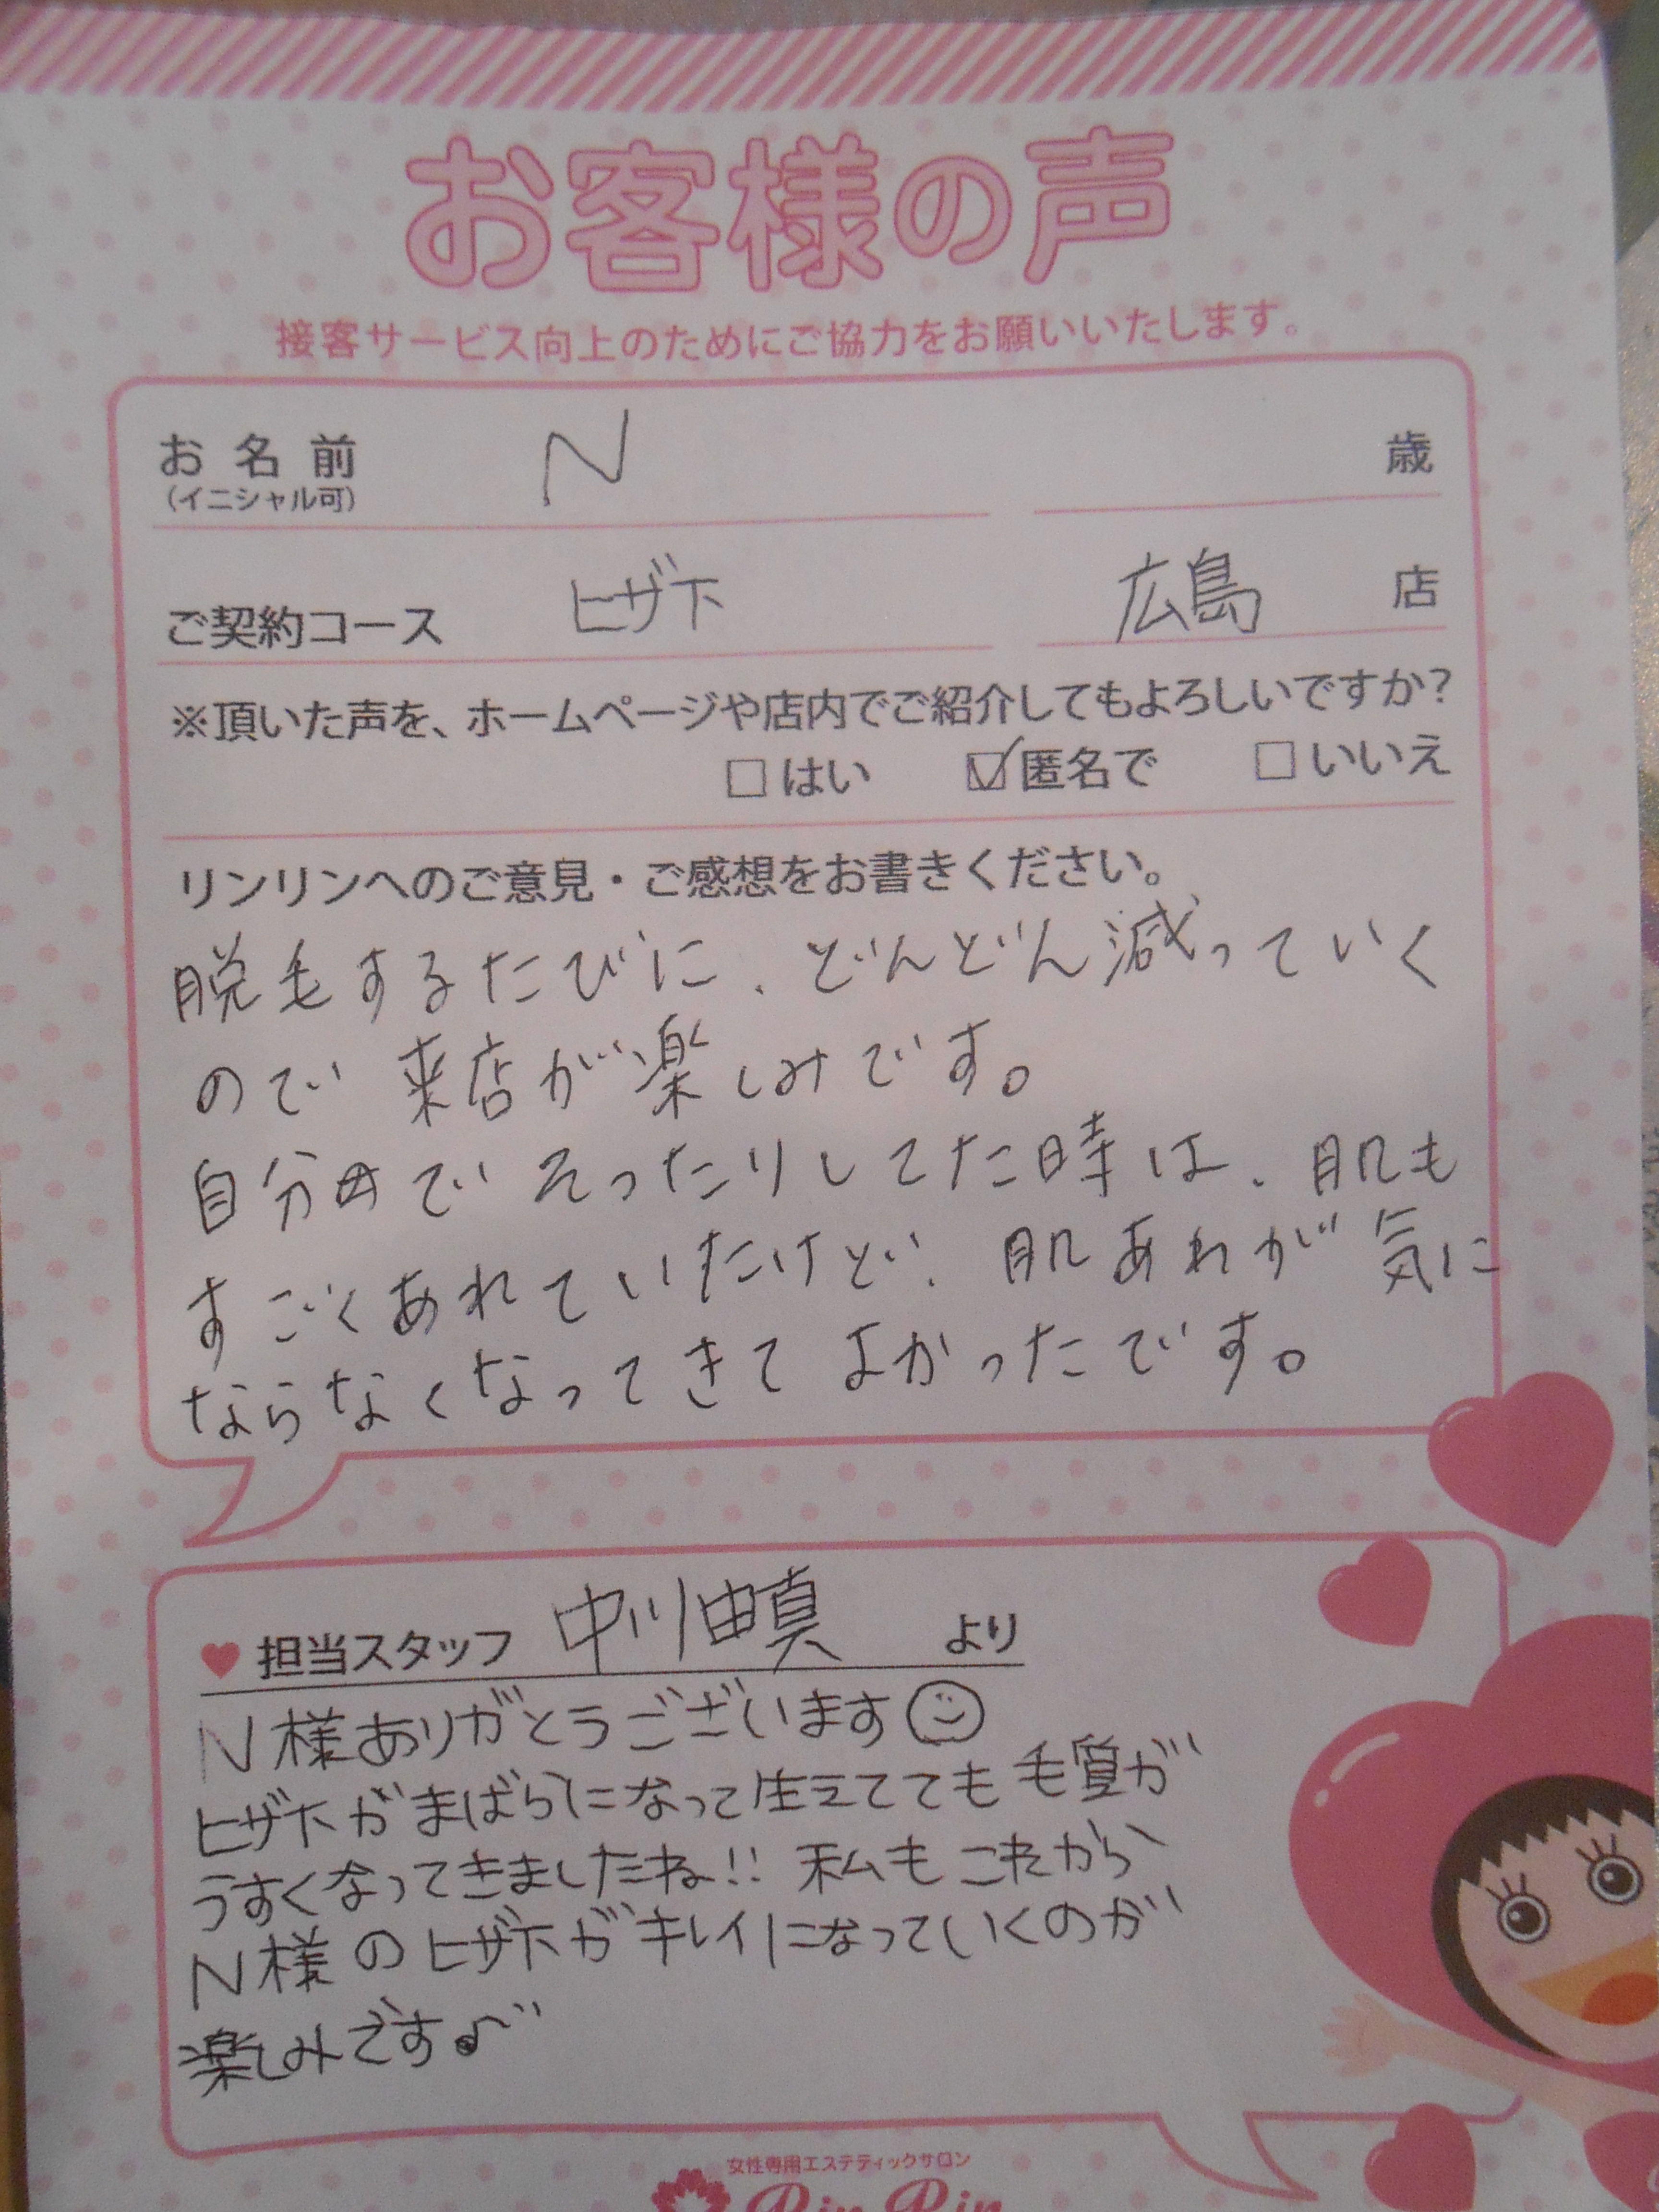 お客様の声
接客サービス向上のためにご協力をお願いいたします。
お名前 N 歳
(イニシャル可)
ご契約コース ヒザ下 広島 店
※頂いた声を、ホームページや店内でご紹介してもよろしいですか?
□はい ☑匿名で □いいえ
リンリンへのご意見・ご感想をお書きください。
脱毛するたびに、どんどん減っていく
ので 来店が楽しみです。
自分で そったりしてた時は、肌も
すごくあれていたけど、肌あれが気に
ならなくなってきて よかったです。
♥担当スタッフ 中川由真 より
N様ありがとうございます☺
ヒザ下がまばらになって生えてても毛質が
うすくなってきましたね!! 私もこれから
N様のヒザ下がキレイになっていくのが
楽しみです♪
女性専用エステティックサロン
Rin Rin